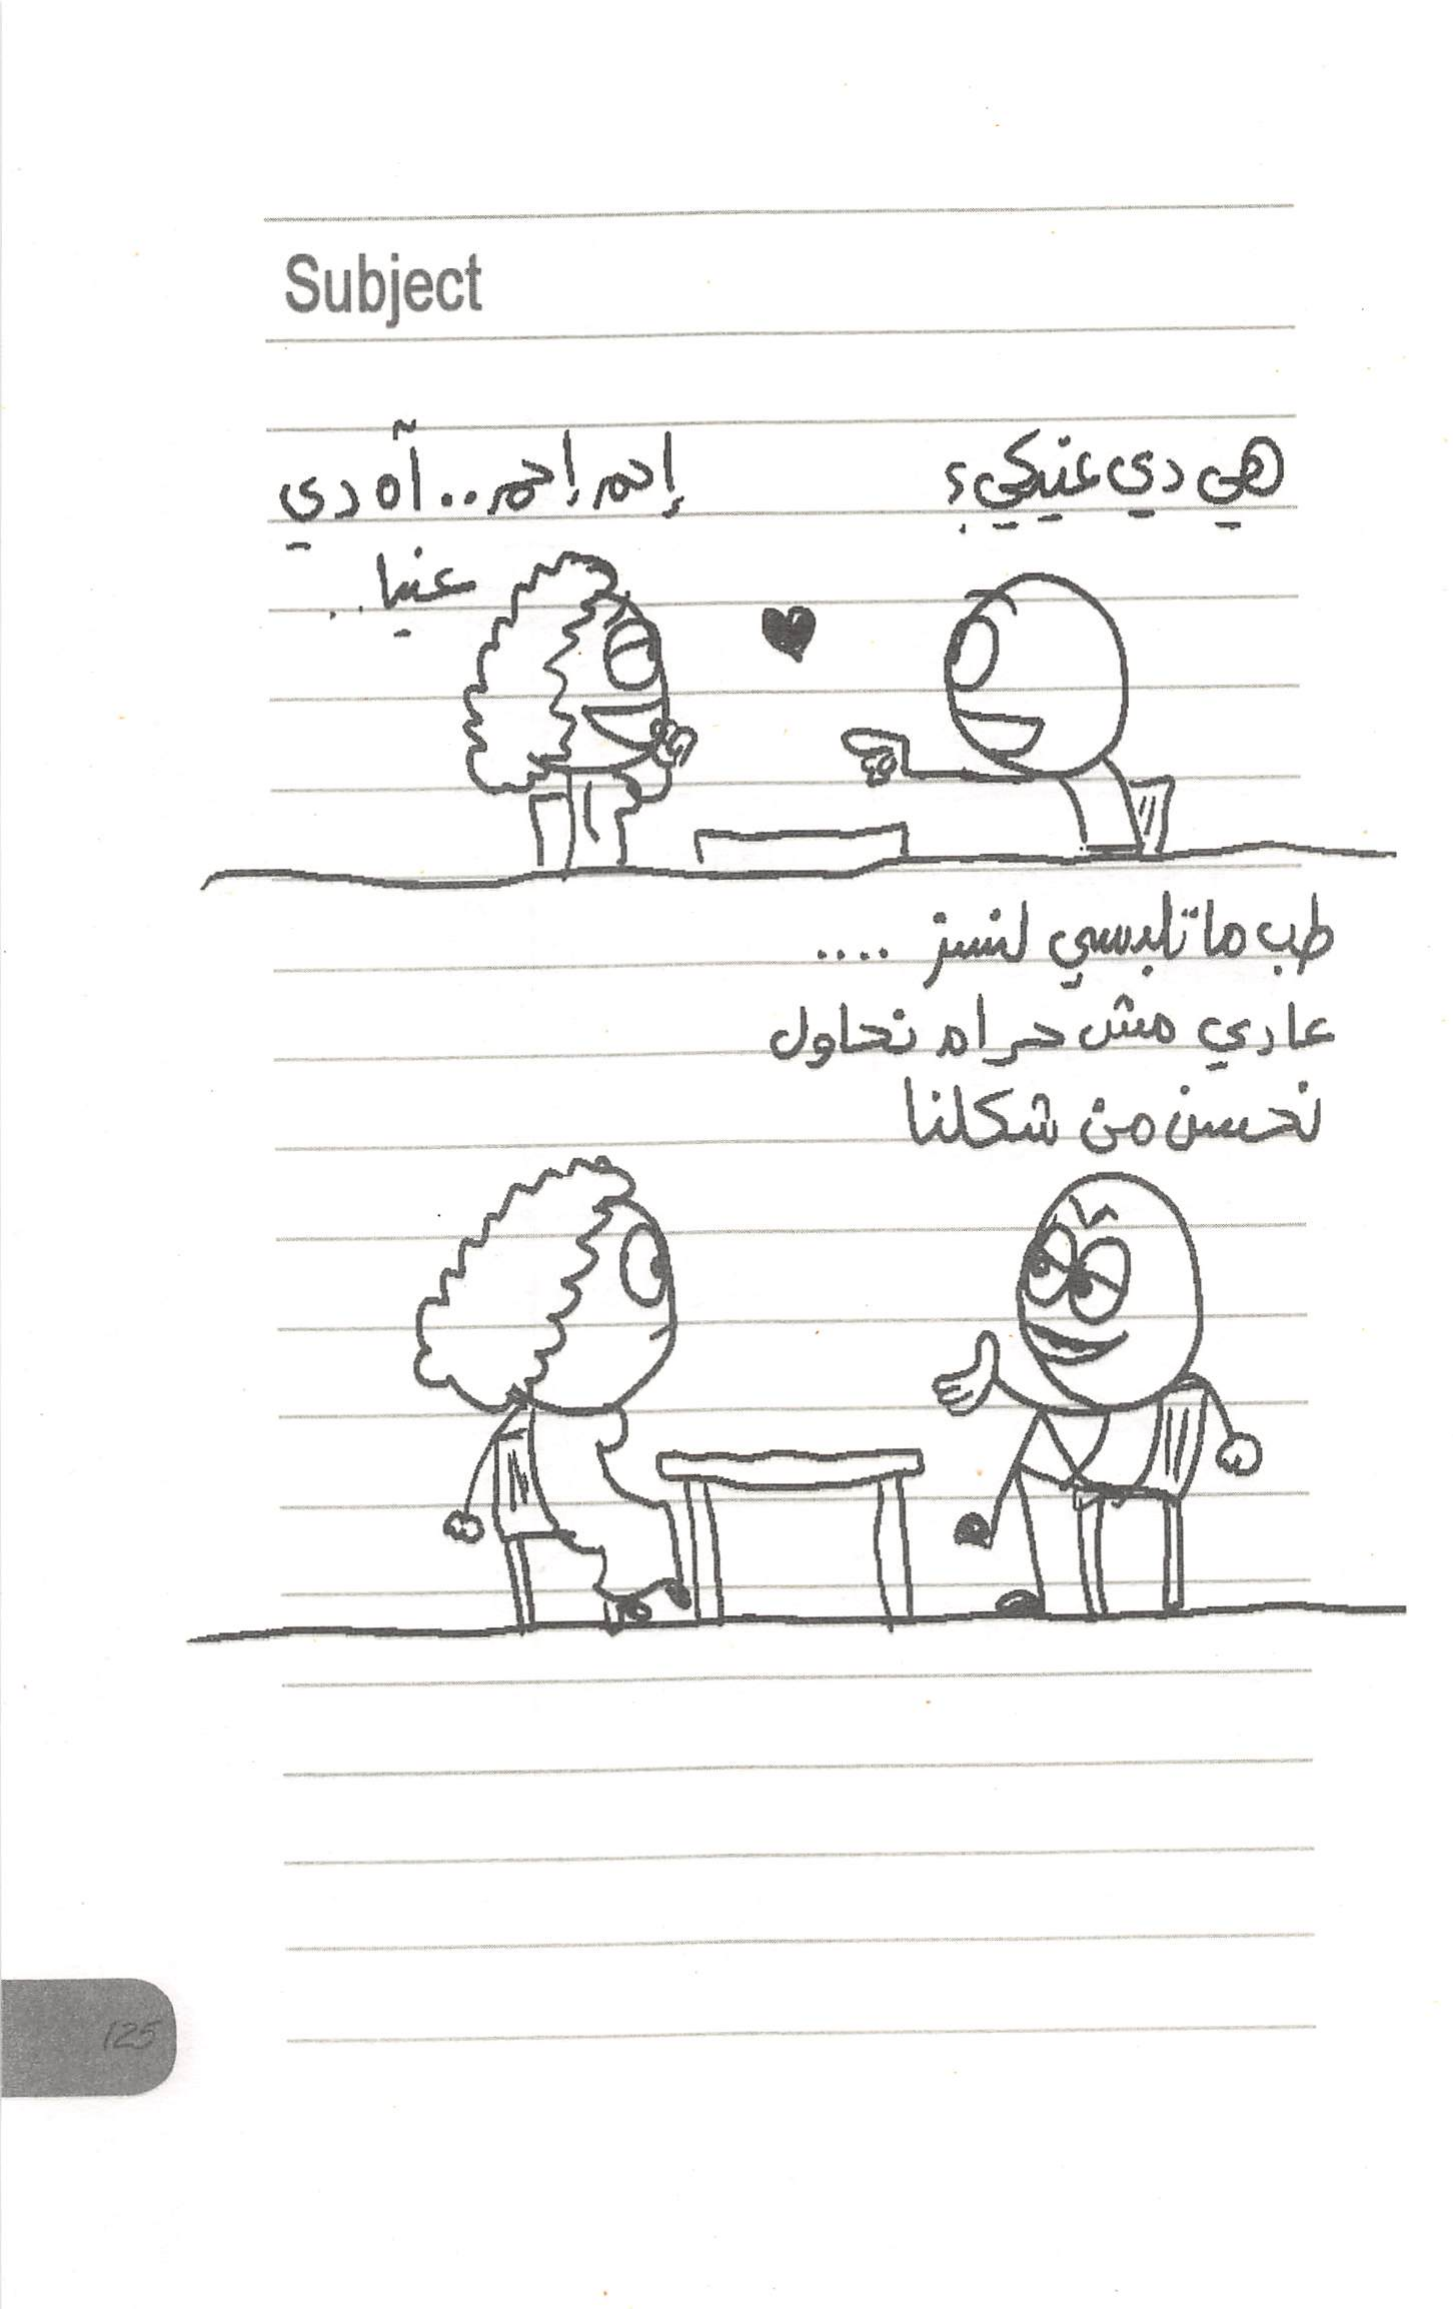 Subject
هي دي عنيكي؟
إحم إحم.. آه دي
عنيا..
طب ما تلبسي لنسز ....
عادي مش حرام نحاول
نحسن من شكلنا
125